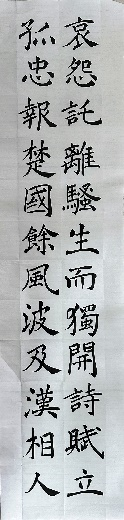 哀怨託離騷生而獨開詩賦立
孤忠報楚國餘風波及漢相人